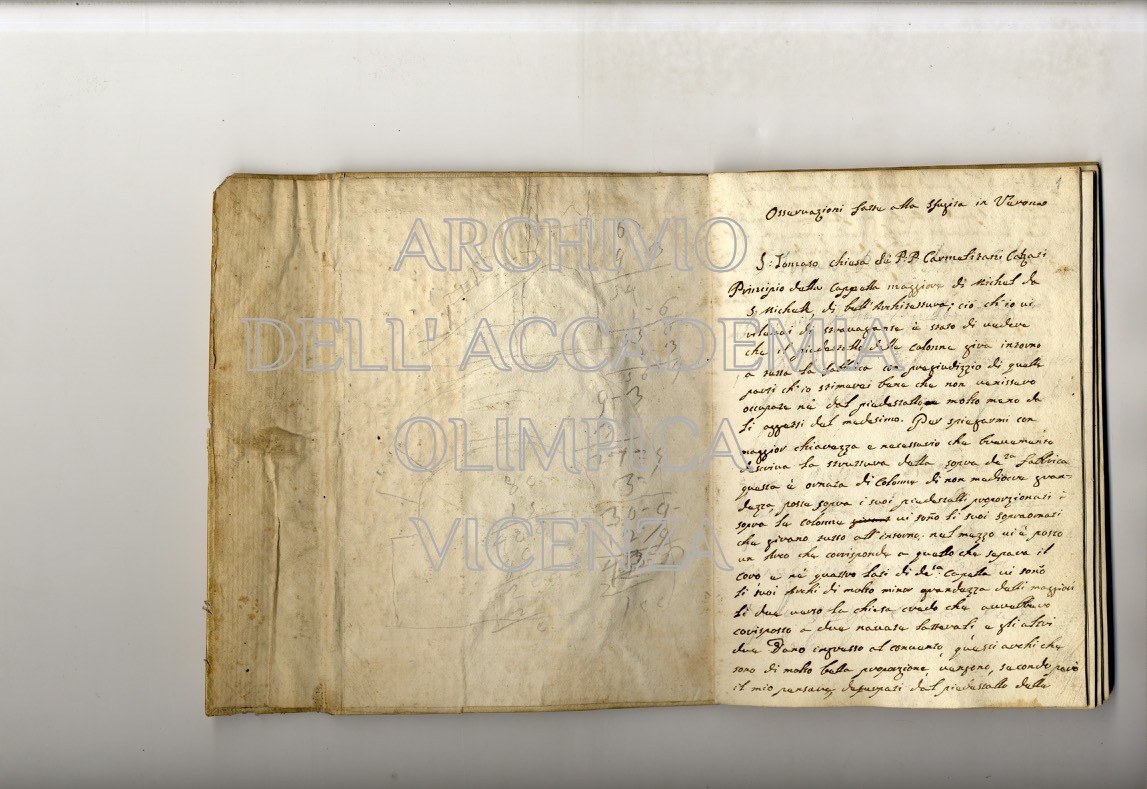 ARCHIVIO
DELL'ACCADEMIA
OLIMPICA
VICENZA
1
Osseruazioni fatte alla sfugita in Verona
S: Tomaso chiesa de P.P. Carmelitani Calzati
Principio della Cappella maggiore di Michel da
S. Michele di bell'Architettura; ciò ch'io ui
rileuai di strauagante è stato di uedere
che il piedestallo delle colonne giva intorno
a tutta la fabbrica con pregiudizzio di quelle
parti ch'io stimerei bene che non uenissero
occupate nè dal piedestallo e molto meno da
li aggetti del medesimo. Per spiegarmi con
maggior chiarezza e necessario che breuemente
descriva la struttura della sopra de.ta fabbrica
questa è ornata di Colonne di non mediocre gran-
dezza poste sopra i suoi piedestalli proporzionati
sopra le colonne ui sono li suoi sopraornati
che girano tutto all'intorno. nel mezzo ui è posto
un Arco che corrisponde a quello che separa il
Coro e nè quattro lati di de.ta Capella ui sono
li suoi Archi di molto minor grandezza delli maggiori
li due uerso la chiesa credo che aurebbero
corisposto a due nauate latterali e gli altri
due Dano ingresso al conuento, questi archi che
sono di molto bella proporzione uengono, secondo però
il mio pensare, deturpati dal piedestallo delle